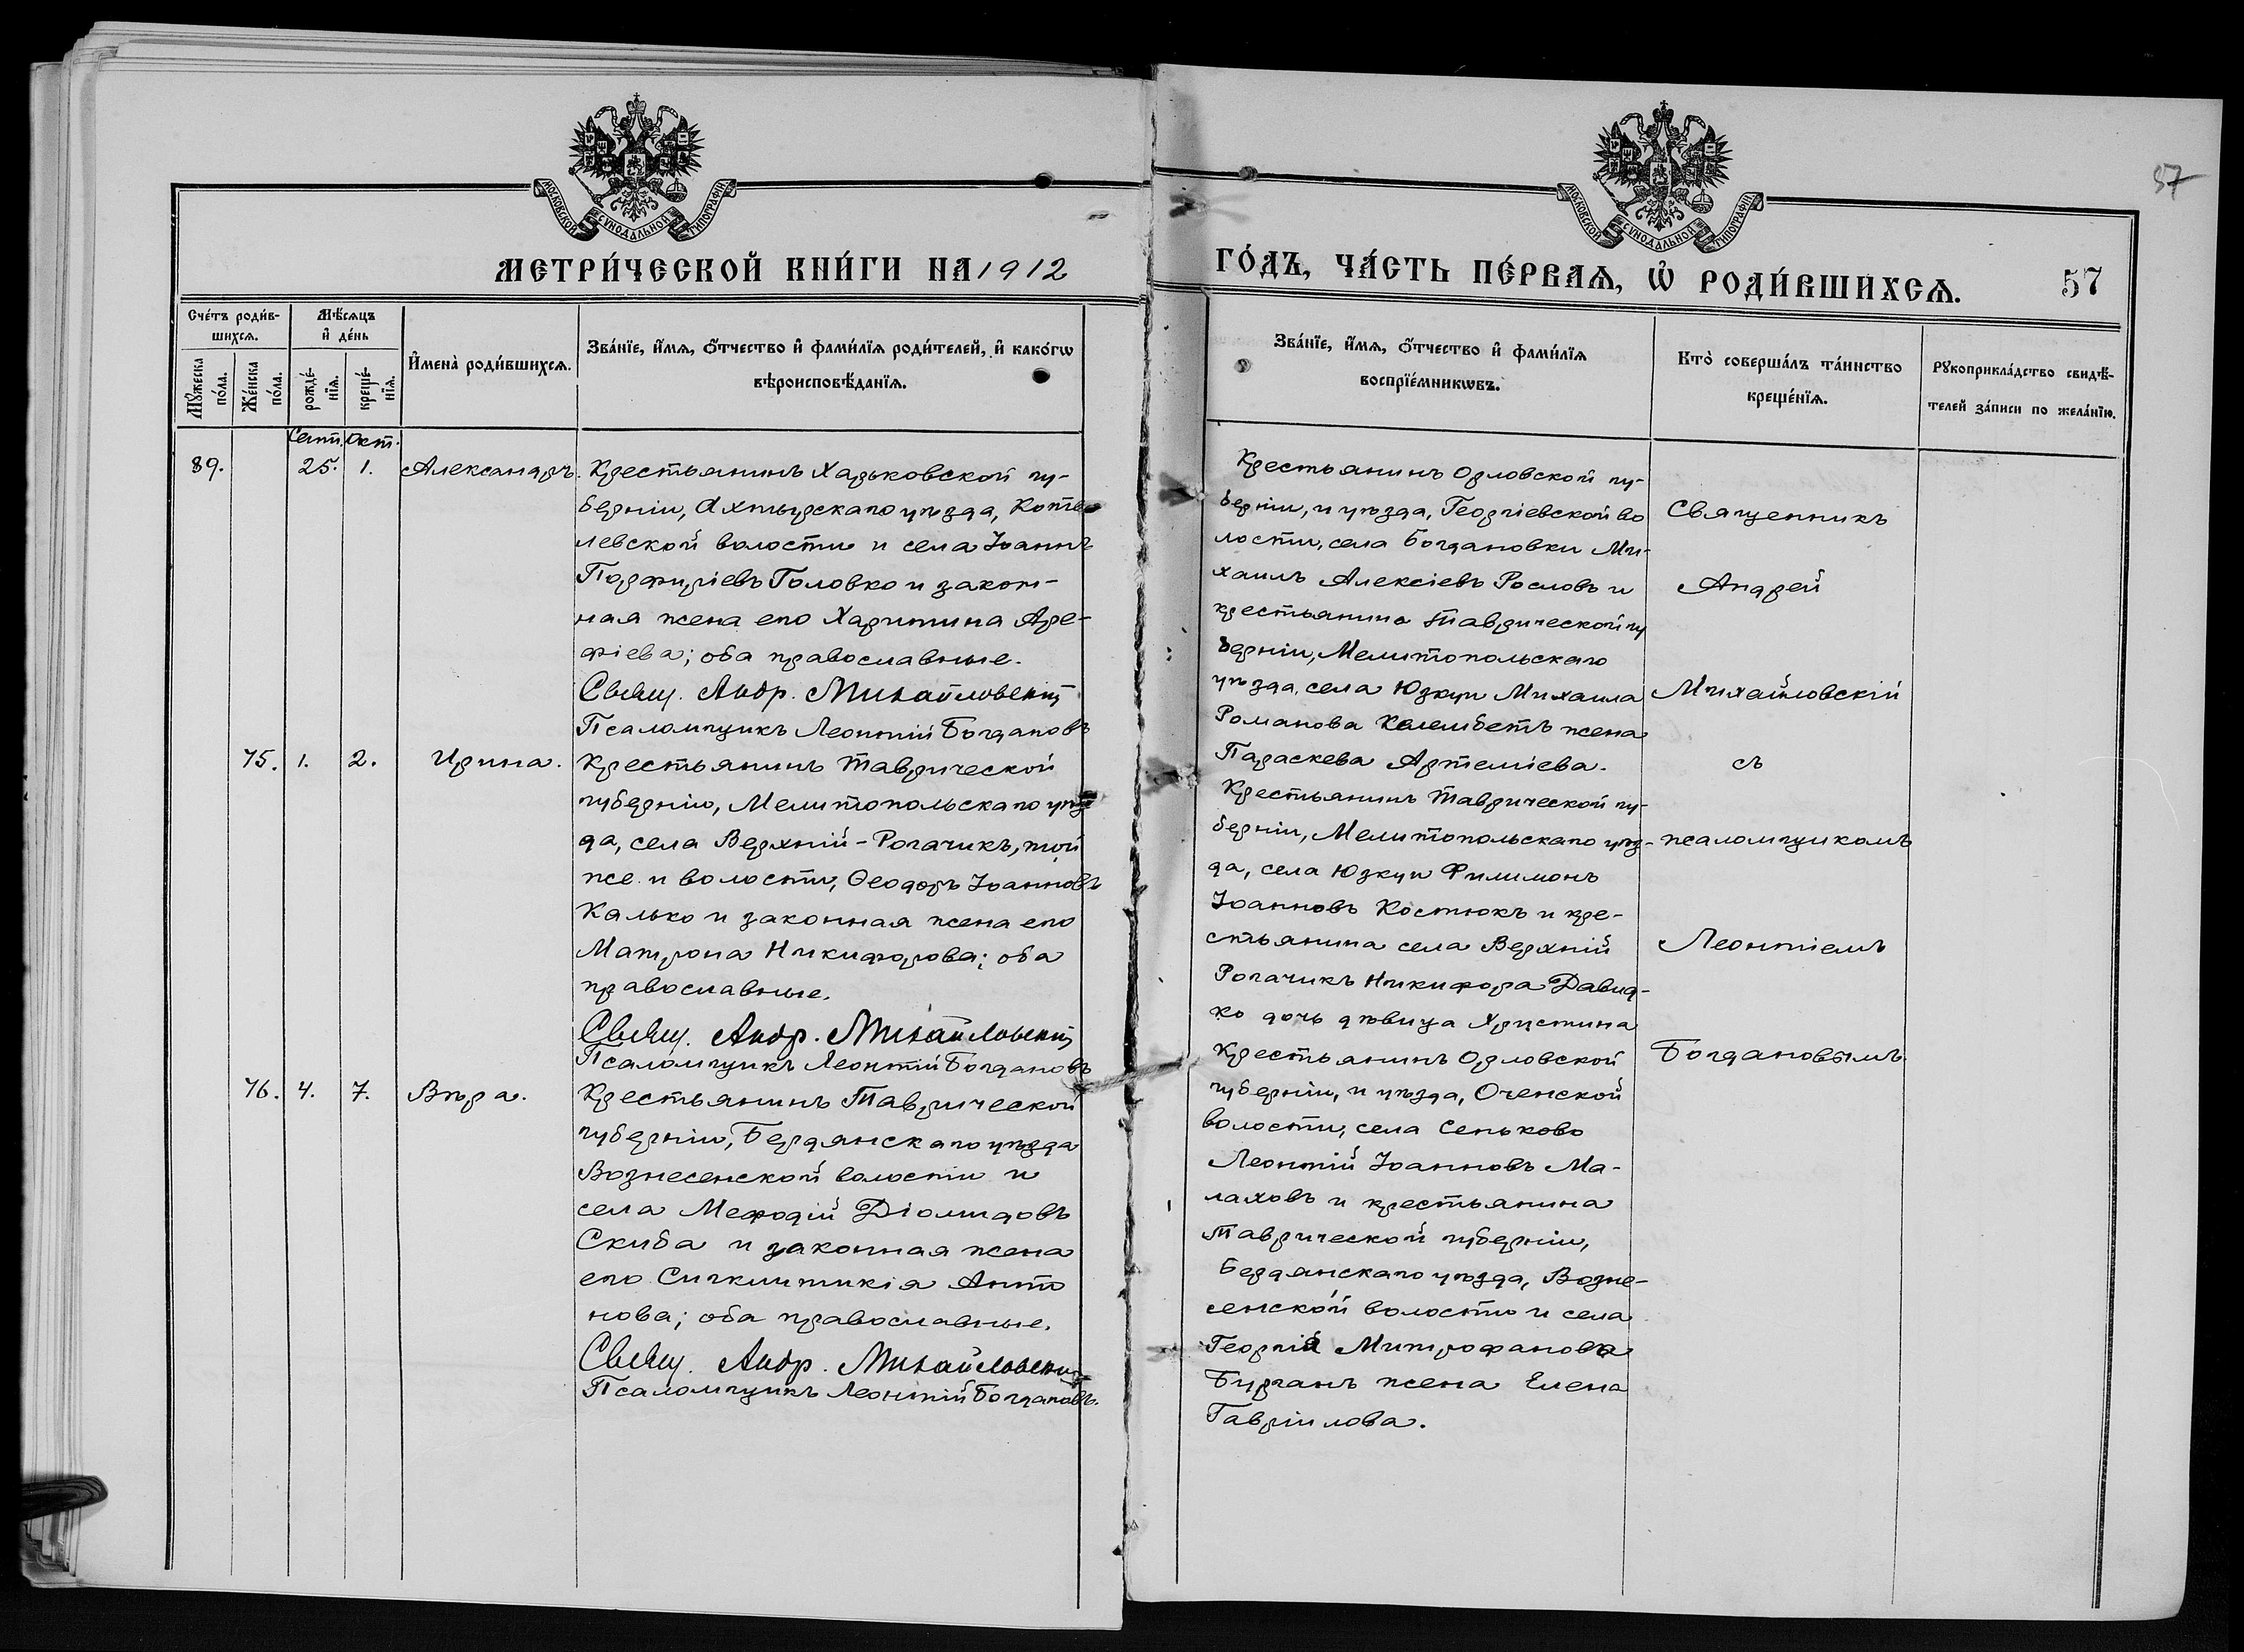 МОСКОВСКОЙ СѴНОДАЛЬНОЙ ТИПОГРАФІИ
МЕТРИ́ЧЕСКОЙ КНИ́ГИ НА 1912
Сче́тъ роди́в-
шихсѧ.
Мѣ́сѧцъ
и҆ де́нь
И҆мена̀ роди́вшихсѧ.
Зва́нїе, и҆́мѧ, ѻ҆́тчество и҆ фами́лїѧ роди́телей, и҆ како́гѡ
вѣроисповѣ́данїѧ.
Мꙋ́жеска
по́ла.
Же́нска
по́ла.
рожде́-
нїѧ.
креще́-
нїѧ.
Сент. Окт.
89. 25. 1. Александръ. Крестьянинъ Харьковской гу-
берніи, Ахтырскаго уѣзда, Коте
левской волости и села Іоаннъ
Порфиріевъ Головко и закон-
ная жена его Харитина Аре-
фіева; оба православные.
Свящ. Андр. Михайловскій
Псаломщикъ Леонтій Богдановъ
75. 1. 2. Ирина. Крестьянинъ Таврической
губерніи, Мелитопольскаго уѣз
да, села Верхній-Рогачикъ, той
же и волости, Ѳеодоръ Іоанновъ
Калько и законная жена его
Матрона Никифорова; оба
православные.
Свящ. Андр. Михайловскій
Псаломщикъ Леонтій Богдановъ
76. 4. 7. Вѣра. Крестьянинъ Таврической
губерніи, Бердянскаго уѣзда
Вознесенской волости и
села Мефодій Діомидовъ
Скиба и законная жена
его Сигклитикія Анто
нова; оба православные.
Свящ. Андр. Михайловскій
Псаломщикъ Леонтій Богдановъ.
57
МОСКОВСКОЙ СѴНОДАЛЬНОЙ ТИПОГРАФІИ
ГО́ДЪ, ЧА́СТЬ ПЕ́РВАѦ, Ѡ҆ РОДИ́ВШИХСѦ. 57
Зва́нїе, и҆́мѧ, ѻ҆́тчество и҆ фами́лїѧ
воспрїе́мникѡвъ.
Кто̀ соверша́лъ та́инство
креще́нїѧ.
Рꙋкоприкла́дство свидѣ́-
телей за́писи по жела́нїю.
Крестьянинъ Орловской гу-
берніи, и уѣзда, Георгіевской во
лости, села Богдановки Ми-
хаилъ Алексіевъ Рословъ и
крестьянина Таврической гу
берніи, Мелитопольскаго
уѣзда, села Юзкуи Михаила
Романова Келембетъ жена
Параскева Артеміева.
Крестьянинъ Таврической гу-
берніи, Мелитопольскаго уѣз-
да, села Юзкуи Филимонъ
Іоанновъ Костюкъ и кре-
стьянина села Верхній
Рогачикъ Никифора Давид-
ко дочь дѣвица Христина
Крестьянинъ Орловской
губерніи, и уѣзда, Оченской
волости, села Сеньково
Леонтій Іоанновъ Ма-
лаховъ и крестьянина
Таврической губерніи,
Бердянскаго уѣзда, Возне-
сенской волости и села
Георгія Митрофанова
Бурганъ жена Елена
Гавріилова.
Священникъ
Андрей
Михайловскій
съ
псаломщикомъ
Леонтіемъ
Богдановымъ